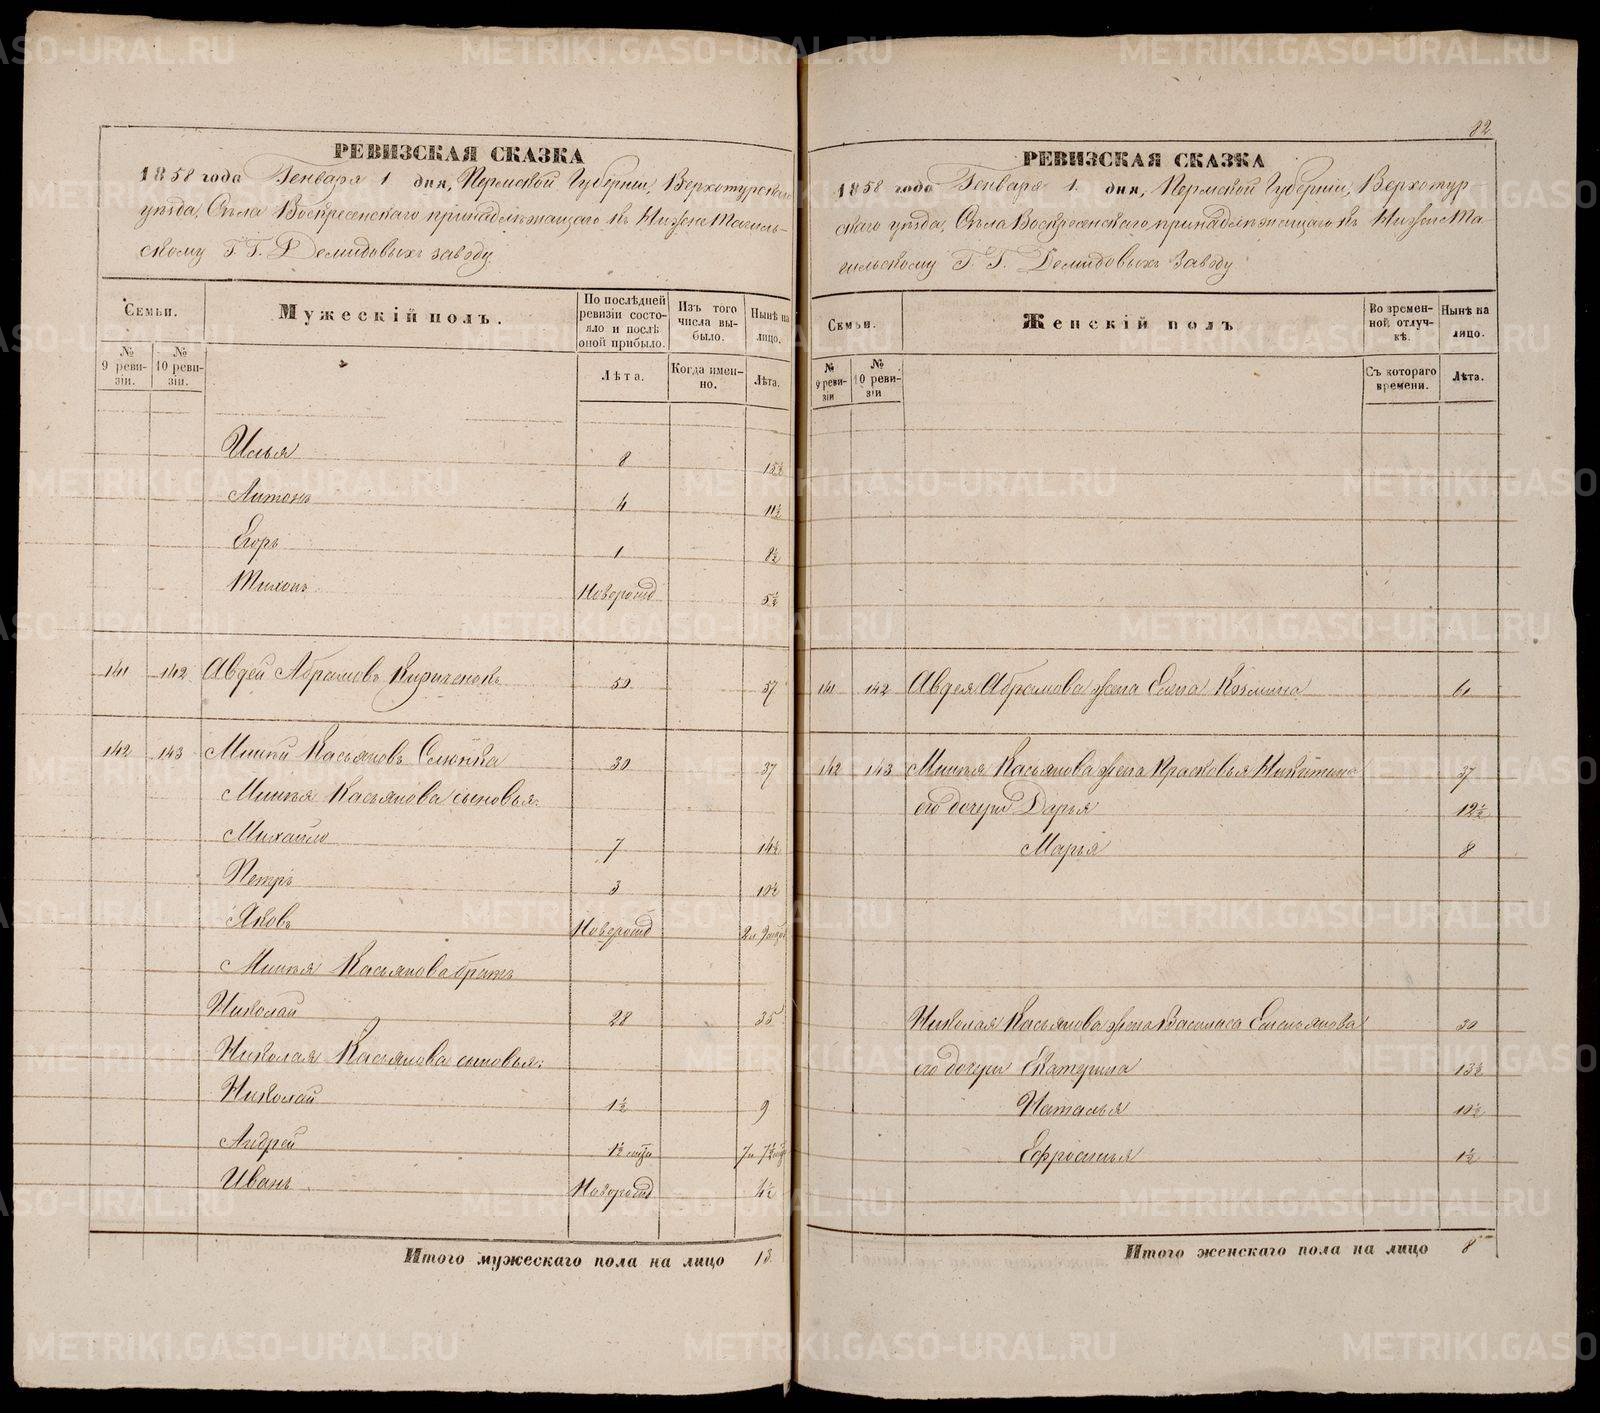 82
РЕВИЗСКАЯ СКАЗКА
1858 года Генваря 1 дня, Пермской Губерніи, Верхотурскаго
уѣзда, Села Воскресенскаго принадлѣжащаго къ Нижне Тагиль-
скому Г. Г. Демидовыхъ заводу
Семьи.
№ 9 ревизіи.
№ 10 ревизіи.
Мужескій полъ.
По послѣдней ревизіи состояло и послѣ оной прибыло.
Лѣта.
Изъ того числа выбыло.
Когда именно.
Нынѣ на лицо.
Лѣта.
Илья 8 15½
Антонъ 4 11½
Егоръ 1 8½
Тихонъ Новорожд 5½
141 142 Авдей Абрамовъ Кириченокъ 50 57
142 143 Минѣй Касьяновъ Слюнка 30 37
Минѣя Касьянова сыновья:
Михайло 7 14½
Петръ 3 10½
Яковъ Новорожд 2 л. 9 мѣсяц
Минѣя Касьянова братъ
Николай 28 35
Николая Касьянова сыновья:
Николай 1½ 9
Андрей 1½ мѣсц 7 л 7½ мѣц
Иванъ Новорожд 4½
Итого мужескаго пола на лицо 13
РЕВИЗСКАЯ СКАЗКА
1858 года Генваря 1 дня, Пермской Губерніи, Верхотур
скаго уѣзда, Села Воскресенскаго принадлѣжащаго къ Нижне Та-
гильскому Г. Г. Демидовыхъ Заводу
Семьи.
№ 9 ревизіи
№ 10 ревизіи
Женскій полъ
Во временной отлучкѣ.
Съ котораго времени.
Нынѣ на лицо.
Лѣта.
141 142 Авдея Абрамова жена Елена Козмина 61
142 143 Минѣя Касьянова жена Прасковья Никитина 37
его дочери Дарья 12½
Марья 8
Николая Касьянова жена Василиса Емельянова 30
его дочери Екатерина 13½
Наталья 10½
Ефросинья 1½
Итого женскаго пола на лицо 8
METRIKI.GASO-URAL.RU